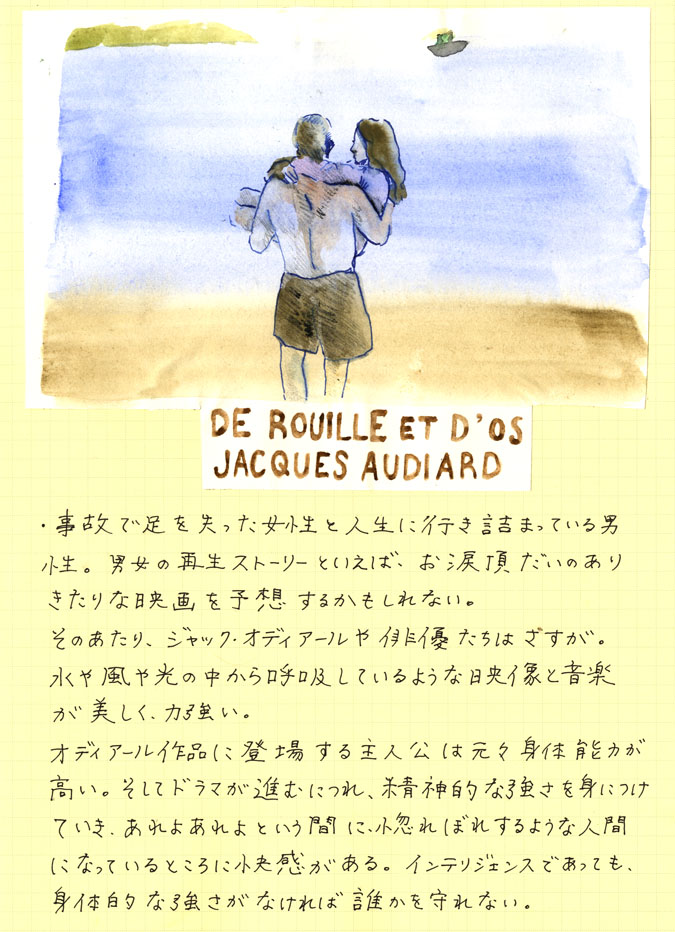 DE ROUILLE ET D'OS
JACQUES AUDIARD
・事故で足を失った女性と人生に行き詰まっている男
性。男女の再生ストーリーといえば、お涙頂だいのあり
きたりな映画を予想するかもしれない。
そのあたり、ジャック・オディアールや俳優たちはさすが。
水や風や光の中から呼吸しているような映像と音楽
が美しく、力強い。
オディアール作品に登場する主人公は元々身体能力が
高い。そしてドラマが進むにつれ、精神的な強さを身につけ
ていき、あれよあれよという間に、惚れぼれするような人間
になっているところに快感がある。インテリジェンスであっても、
身体的な強さがなければ誰かを守れない。